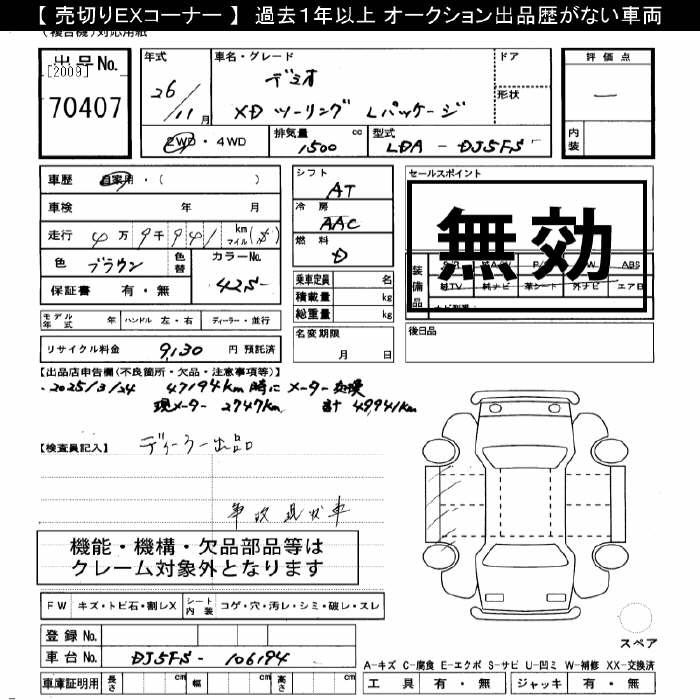 【 売切りEXコーナー 】 過去1年以上 オークション出品歴がない車両
(複合機)対応用紙
出品No.
[2009]
70407
年式
26/11月
車名・グレード
デミオ
XD ツーリング Lパッケージ
ドア
形状
評価点
―
内装
2WD・4WD
排気量 1500 cc
型式 LDA - DJ5FS
車歴 自家用・( )
車検 年 月
走行 4万 9千 941 km マイル($)
色 ブラウン 色替 カラーNo. 42S-
保証書 有・無
シフト AT
冷房 AAC
燃料 D
乗車定員 名
積載量 kg
総重量 kg
セールスポイント
無効
装備品
ABS
純TV 純ナビ 革シート 外ナビ エアロ
モデル年式 年 ハンドル 左・右 ディーラー・並行
名変期限 月 日
後日品
リサイクル料金 9,130 円 預託済
【出品店申告欄(不良箇所・欠品・注意事項等)】
・2025/3/24 47194km 時に メーター交換
現メーター 2747km 計 49941km
【検査員記入】 ディーラー出品
事故現状車
機能・機構・欠品部品等は
クレーム対象外となります
FW キズ・トビ石・割レX シート内装 コゲ・穴・汚レ・シミ・破レ・スレ
登録No.
車台No. DJ5FS - 106194
車庫証明用 長さ cm 幅 cm 高さ cm
スペア
A-キズ C-腐食 E-エクボ S-サビ U-凹ミ W-補修 XX-交換済
工具 有・無 ジャッキ 有・無